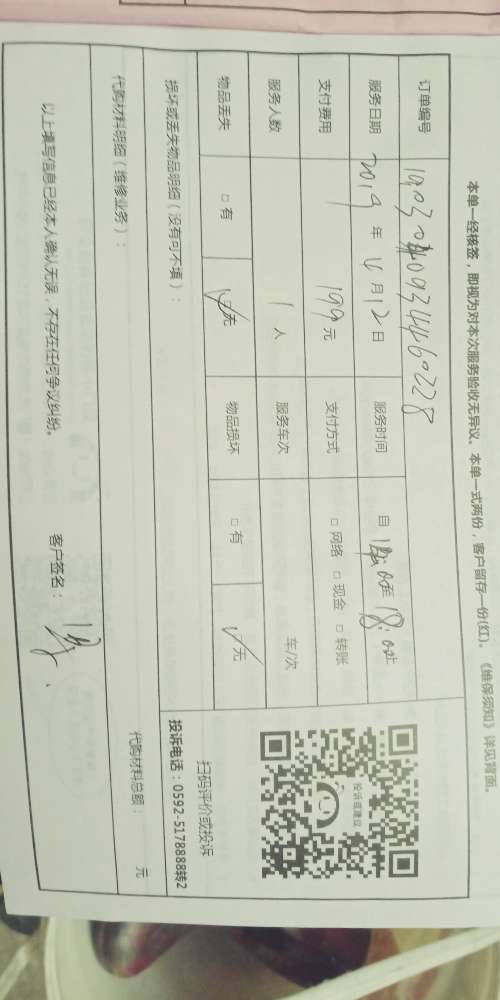 本单一经核签，即视为对本次服务验收无异议。本单一式两份，客户留存一份(红)。《维保须知》详见背面。
订单编号
服务日期 2019 年 4 月 12 日 服务时间 自 至 18: 止
支付费用 199 元 支付方式 □ 网络 □ 现金 □ 转账
服务人数 1 人 服务车次 车/次
物品丢失 □ 有 ☑ 无 物品损坏 □ 有 ☑ 无
损坏或丢失物品明细（没有可不填）：
代购材料明细（维修业务）：
代购材料总额： 元
投诉或建议
扫码评价或投诉
投诉电话：0592-5178888转2
以上填写信息已经本人确认无误，不存在任何争议纠纷。 客户签名：